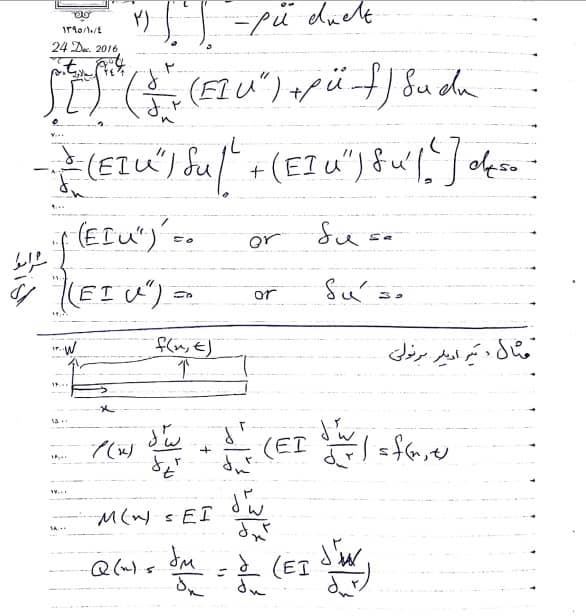 ۱۳۹۵/۱۰/٤
24 Dec. 2016
۲) ∫₀ ∫₀ −ρü dx dt
∫₀ᵗ [ ∫₀ᴸ ( ∂²/∂x² (EIu″) + ρü − f ) δu dx
− ∂/∂x (EIu″) δu |₀ᴸ + (EIu″) δu′ |₀ᴸ ] dt = 0
(EIu″)′ = 0 or δu = 0
شرایط
(EIu″) = 0 or δu′ = 0
مثال: تیر اویلر برنولی
W f(x,t)
x
ρ(x) ∂²w/∂t² + ∂²/∂x² (EI ∂²w/∂x²) = f(x,t)
M(x) = EI ∂²w/∂x²
Q(x) = ∂M/∂x = ∂/∂x (EI ∂²w/∂x²)